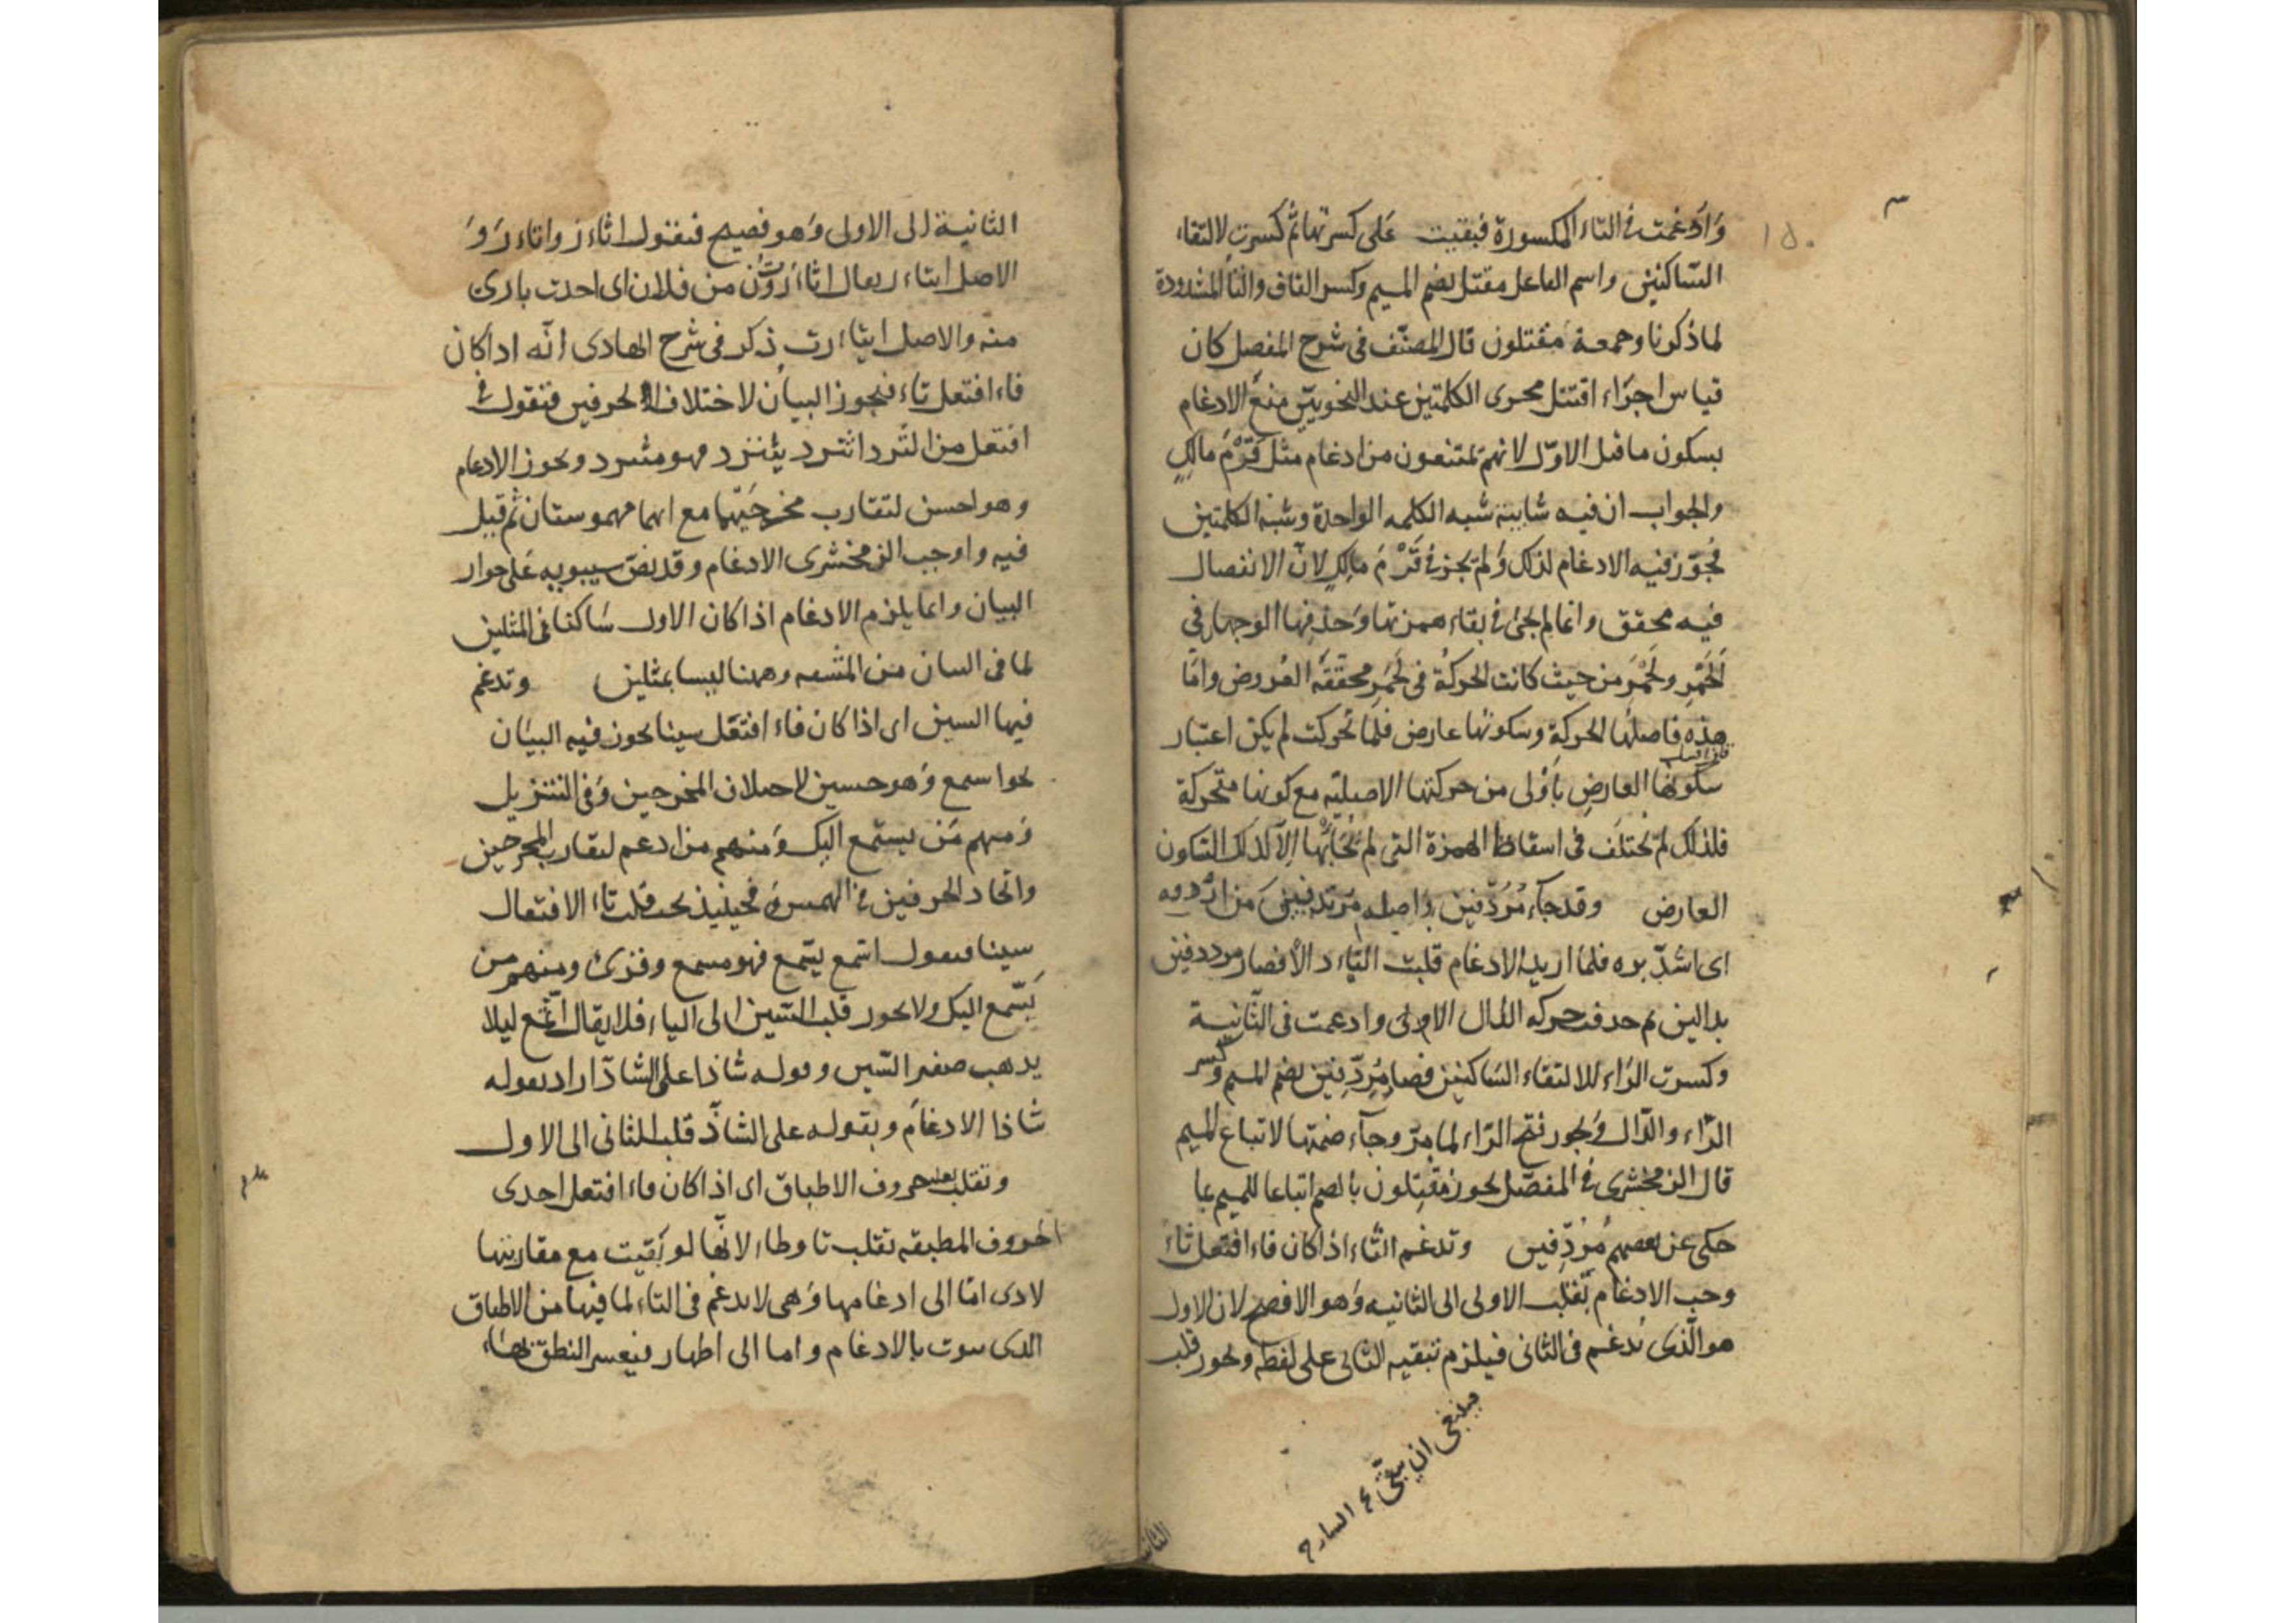 ١٥٠
وَادغمت في التاء المكسورة فبقيت على كسرتها ثم كسرت لالتقاء
السّاكنين واسم الفاعل مقتل بضم الميم وكسر القاف والتا المشدودة
لما ذكرنا وجمعه مقتلون قال المصنّف في شرح المفصل كان
قياس اجراء اقتتل مجرى الكلمتين عند النحويين منع الادغام
بسكون ما قبل الاوّل لانهم يمتنعون من ادغام مثل قَرْمُ مالِكٍ
والجواب ان فيه شايبة شبه الكلمه الواحدة وشبه الكلمتين
فجوّز فيه الادغام لذلك ولم يجز في قَرْمُ مالِكٍ لانّ الانفصال
فيه محقق وانما لم يجئ في بقاء همزتها وحذفها الوجهان في
اَلَحْمَرِ ولَحْمَرِ من حيث كانت الحركة في لحمر محققه العروض وامّا
هذه فاصلها الحركة وسكونها عارض فلما تحركت لم يكن اعتبار
سكونها العارض بأولى من حركتها الاصليّه مع كونها متحركة
فلذلك لم تختلف في اسقاط الهمزة التي لم يُجَأ بها الّا لذلك السّكون
العارض وقد جاء مُرُدّفين اصله مرتدفين من
اى فلمّا اريد الادغام قلبت التاء د الا فصار مرددفين
بدالين ثم حدفت حركه الدال الاولى وادعمت فى الثّانية
وكسرت الرّاء للالتقاء السّاكنين فصار مُرِدِّفين بضم الميم وكسر
الرّاء والدّال ويجور فتح الرّاء لما مرّ وجاء ضمّتها لاتباع الميم
قال الزمخشرى في المفصّل يحوز مُقُتِلون بالضم اتباعا للميم عما
حكى عن بعضهم مُرُدِّفين وتدغم الثاء اذا كان فاء افتعل ثاء
وحب الادغام بقلب الاولى الى الثانيه وهو الافصح لان الاول
هو الّذى يُدغم فى الثانى فيلزم تبقيه الثانى على لفطه ويحور قلب
ينبغى ان يبقى
الثانيه
الثانية الى الاولى وَهو فصيح فنقول
الاصل من فلان اى احدت بارى
منه والاصل ذكر فى شرح الهادى انّه ادا كان
فاء افتعل ثاء فيجوز البيان لاختلاف الحرفين فتقول في
افتعل من الثرد اثترد يثترد فهو مثترد ويحوز الادعام
وهو احسن لتقارب مخرجيهما مع انهما مهموستان ثم قيل
فيه واوجب الزمخشرى الادغام وقد نصّ سيبويه على حوار
البيان وانما يلزم الادغام اذا كان الاول ساكنا فى المثلين
لما فى السان من المشقه وههنا ليسا بمثلين وتدغم
فيها السين اى اذا كان فاء افتعل سينا يحوز فيه البيان
نحوا ستمع وَهو حسين لاختلاف المخرجين وَفى التنزيل
وَمنهم مَن يستمع اليك وَمنهم من ادعم لتقارب المخرحين
واتحاد الحرفين في الهمس فحينيذ يجب قلب تاء الافتعال
سينا فيقول اسّمع يسّمع فهو مسمع وقرئ ومنهم من
يَسّمع اليك ولا يحور قلب السّين الى التاء فلا يقال اتّمع ليلا
يدهب صفير السّين وقوله شاذا على الشاذ اراد بقوله
شاذا الادغام وبقوله على الشاذّ قلب الثانى الى الاول
وتقلب بعد حروف الاطباق اى اذا كان فاء افتعل احدى
الحروف المطبقه تقلب تاوطاء لانّها لو بقيت مع مقاربتها
لادى امّا الى ادغامها وَهى لا تدغم فى التاء لما فيها من الاطباق
الدى يفوت بالادغام واما الى اظهار فيعسر النطق بها